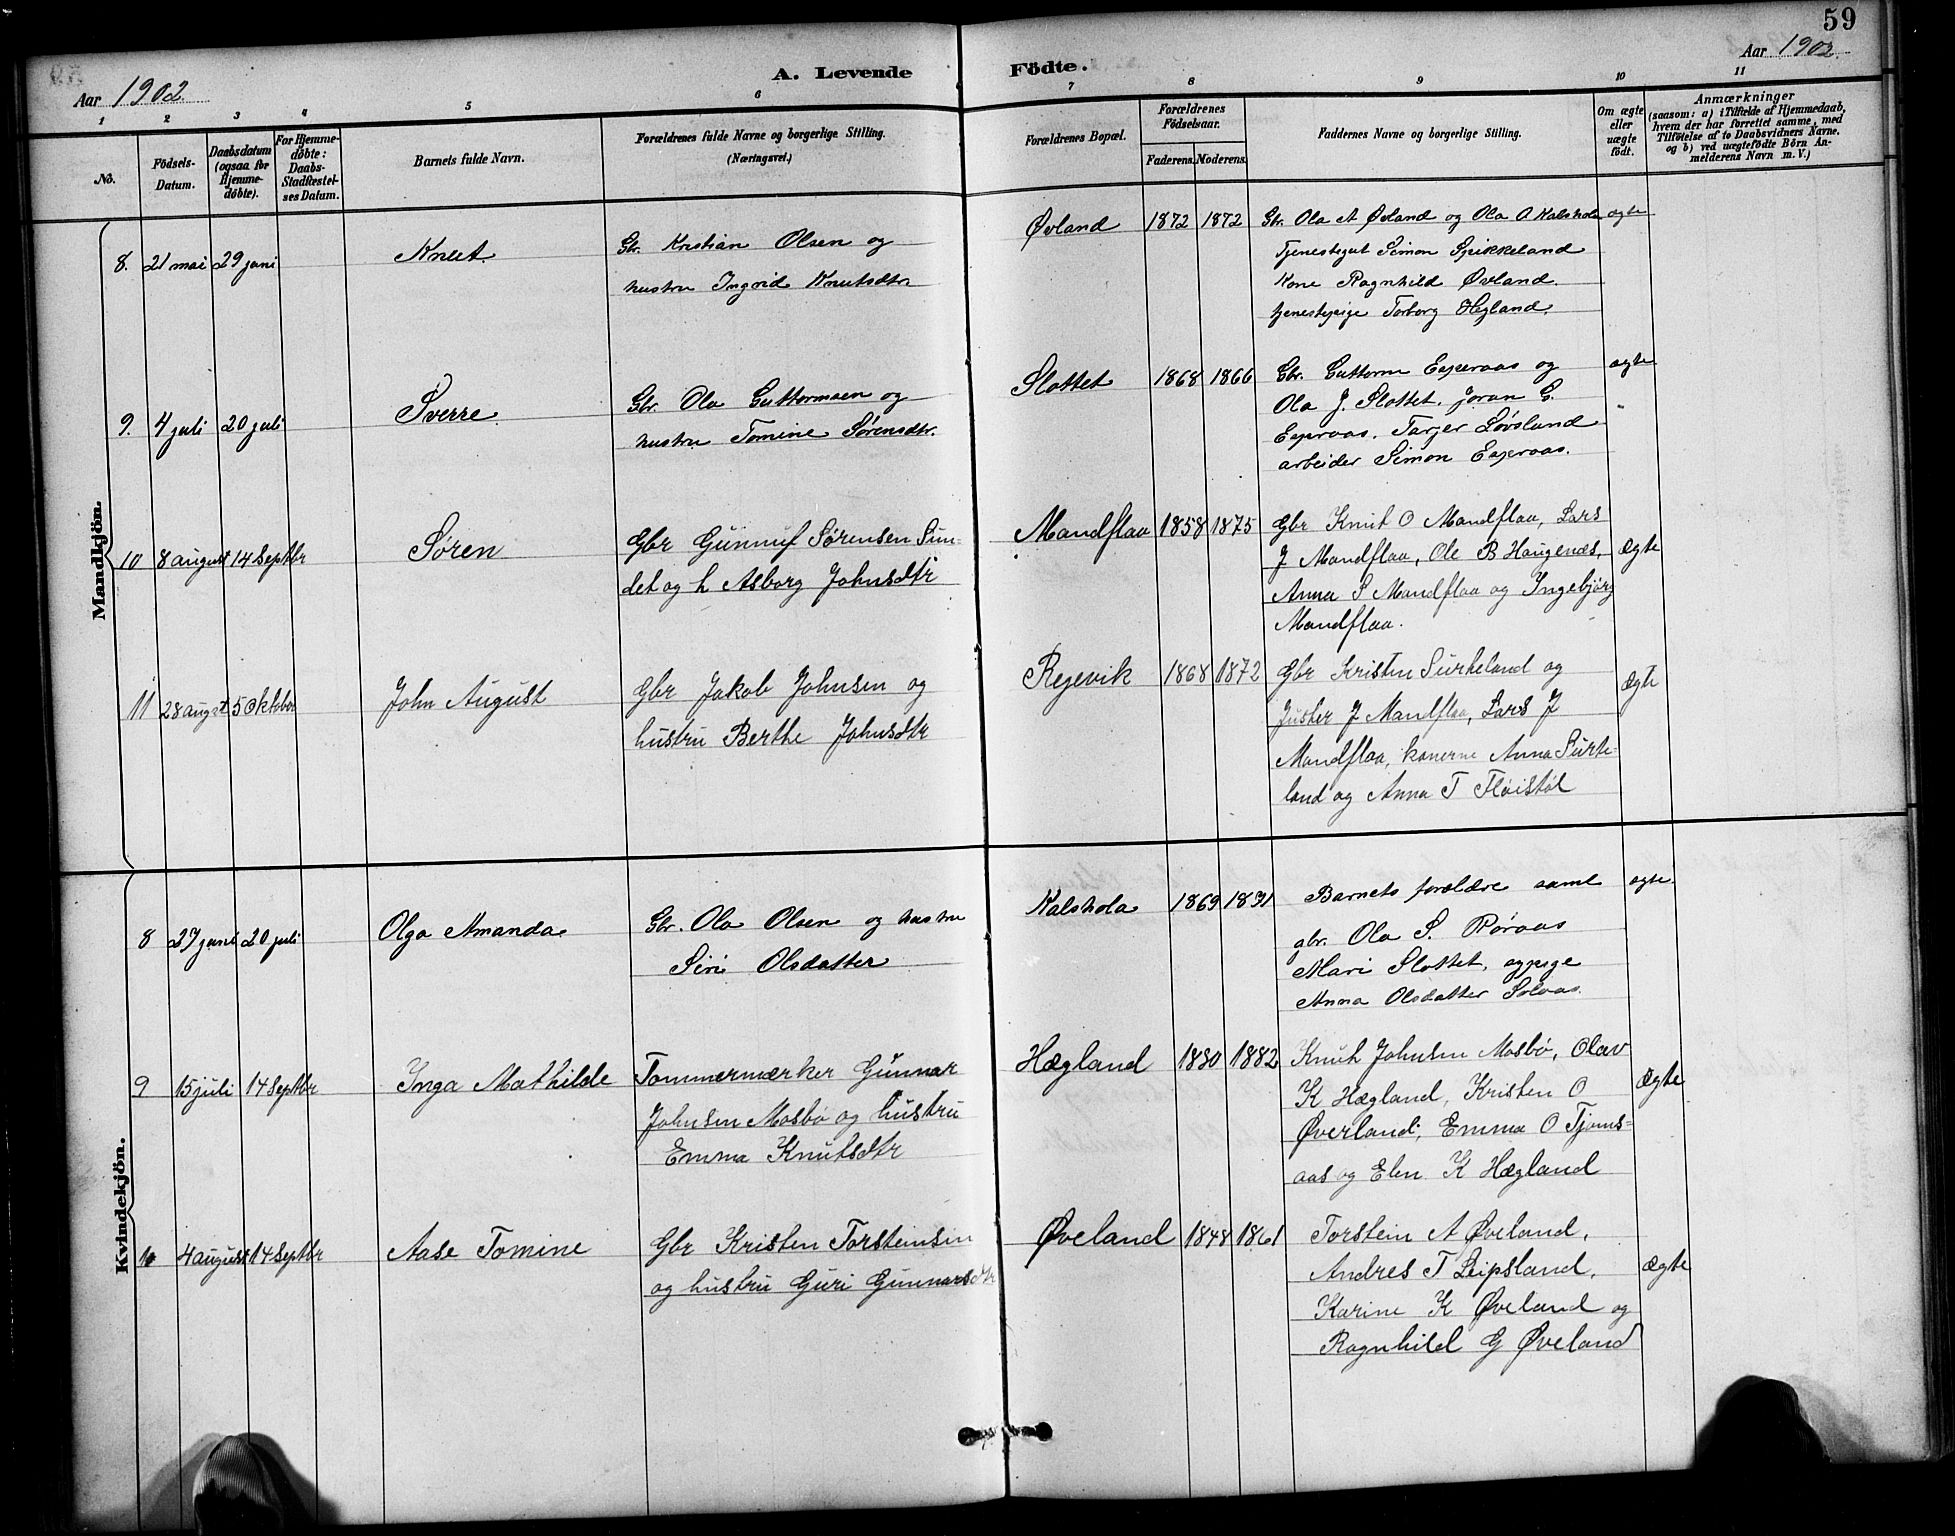 59
Aar 1902. A. Levende Fødte. Aar 1902.
1 2 3 4 5 6 7 8 9 10 11
No.
Fødsels-Datum.
Daabsdatum (ogsaa for Hjemmedøbte).
For Hjemmedøbte: Daabs-Stadfæstelses Datum.
Barnets fulde Navn.
Forældrenes fulde Navne og borgerlige Stilling.
(Næringsvei.)
Forældrenes Bopæl.
Forældrenes Fødselsaar.
Faderens. Moderens.
Faddernes Navne og borgerlige Stilling.
Om ægte eller uægte født.
Anmærkninger
(saasom: a) i Tilfælde af Hjemmedaab, hvem der har forrettet samme, med Tilføielse af to Daabsvidners Navne, og b) ved uægtefødte Børn Anmelderens Navn m. V.)
Mandkjön.
8. 21 mai 29 juni Knut.
Gbr. Kristian Olsen og
hustru Ingrid Knutsdtr
Øvland 1872 1872
Gbr. Ola A Øvland og Ola O Kalshola
Tjenestegut Simon Spikkeland
Kone Ragnhild Øvland.
tjenestepige Torborg Hegland.
ægte
9. 4 juli 20 juli Sverre.
Gbr. Ola Guttormsen og
hustru Tomine Sørensdtr.
Slottet 1868 1866
Gbr. Guttorm Eseraas og
Ola J. Slottet. Joran G.
Eseraas. Tarjer Løvsland
arbeider Simon Eseraas.
ægte
10 8 august 14 Septbr Søren
Gbr Gunnuf Sørensen Sun-
det og h Asborg Johnsdtr
Mandflaa 1858 1875
Gbr Knut O Mandflaa, Lars
J Mandflaa, Ole B Haugenæs,
Anna S Mandflaa og Ingebjørg
Mandflaa.
Ægte
11 28 augst 5 Oktober John August
Gbr Jakob Johnsen og
hustru Berthe Johnsdtr
Røjevik 1868 1872
Gbr Kristen Surteland og
Juster J Mandflaa, Lars J
Mandflaa, konerne Anna Surte-
land og Anna T Fløistøl
Ægte
Kvindekjön.
8 27 juni 20 juli Olga Amanda.
Gbr. Ola Olsen og hustru
Siri Olsdatter
Kalshola 1869 1891
Barnets forældre samt
gbr. Ola S. Røraas
Mari Slottet, og pige
Anna Olsdatter Solaas.
ægte.
9 15 juli 14 Septbr Inga Mathilde
Tommermærker Gunnar
Johnsen Mosbø og hustru
Emma Knutsdtr
Hægland 1880 1882
Knut Johnsen Mosbø, Olav
K Hægland, Kristen O
Øverland, Emma O Tjoms-
aas og Elen K Hægland
Ægte
10 4 august 14 Septbr Aase Tomine
Gbr Kristen Torsteinsen
og hustru Guri Gunnarsdtr
Øveland 1848 1861
Torstein A Øveland,
Andres T Leipsland,
Karine K Øveland og
Ragnhild G Øveland
Ægte